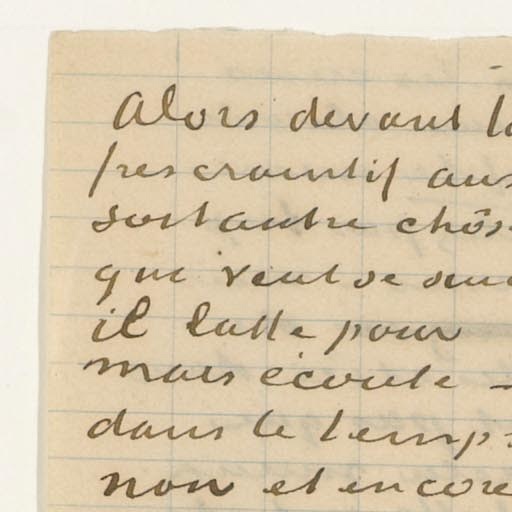 Alors devant l
très craintif aus
sort autre chos
qui veut se
il lutte pour
mais écoute -
dans le temps
non et encore